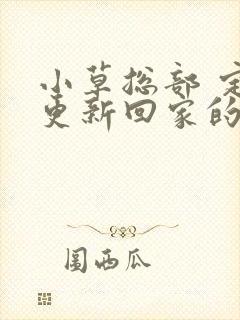 小草総部
更新回家的
圍西瓜